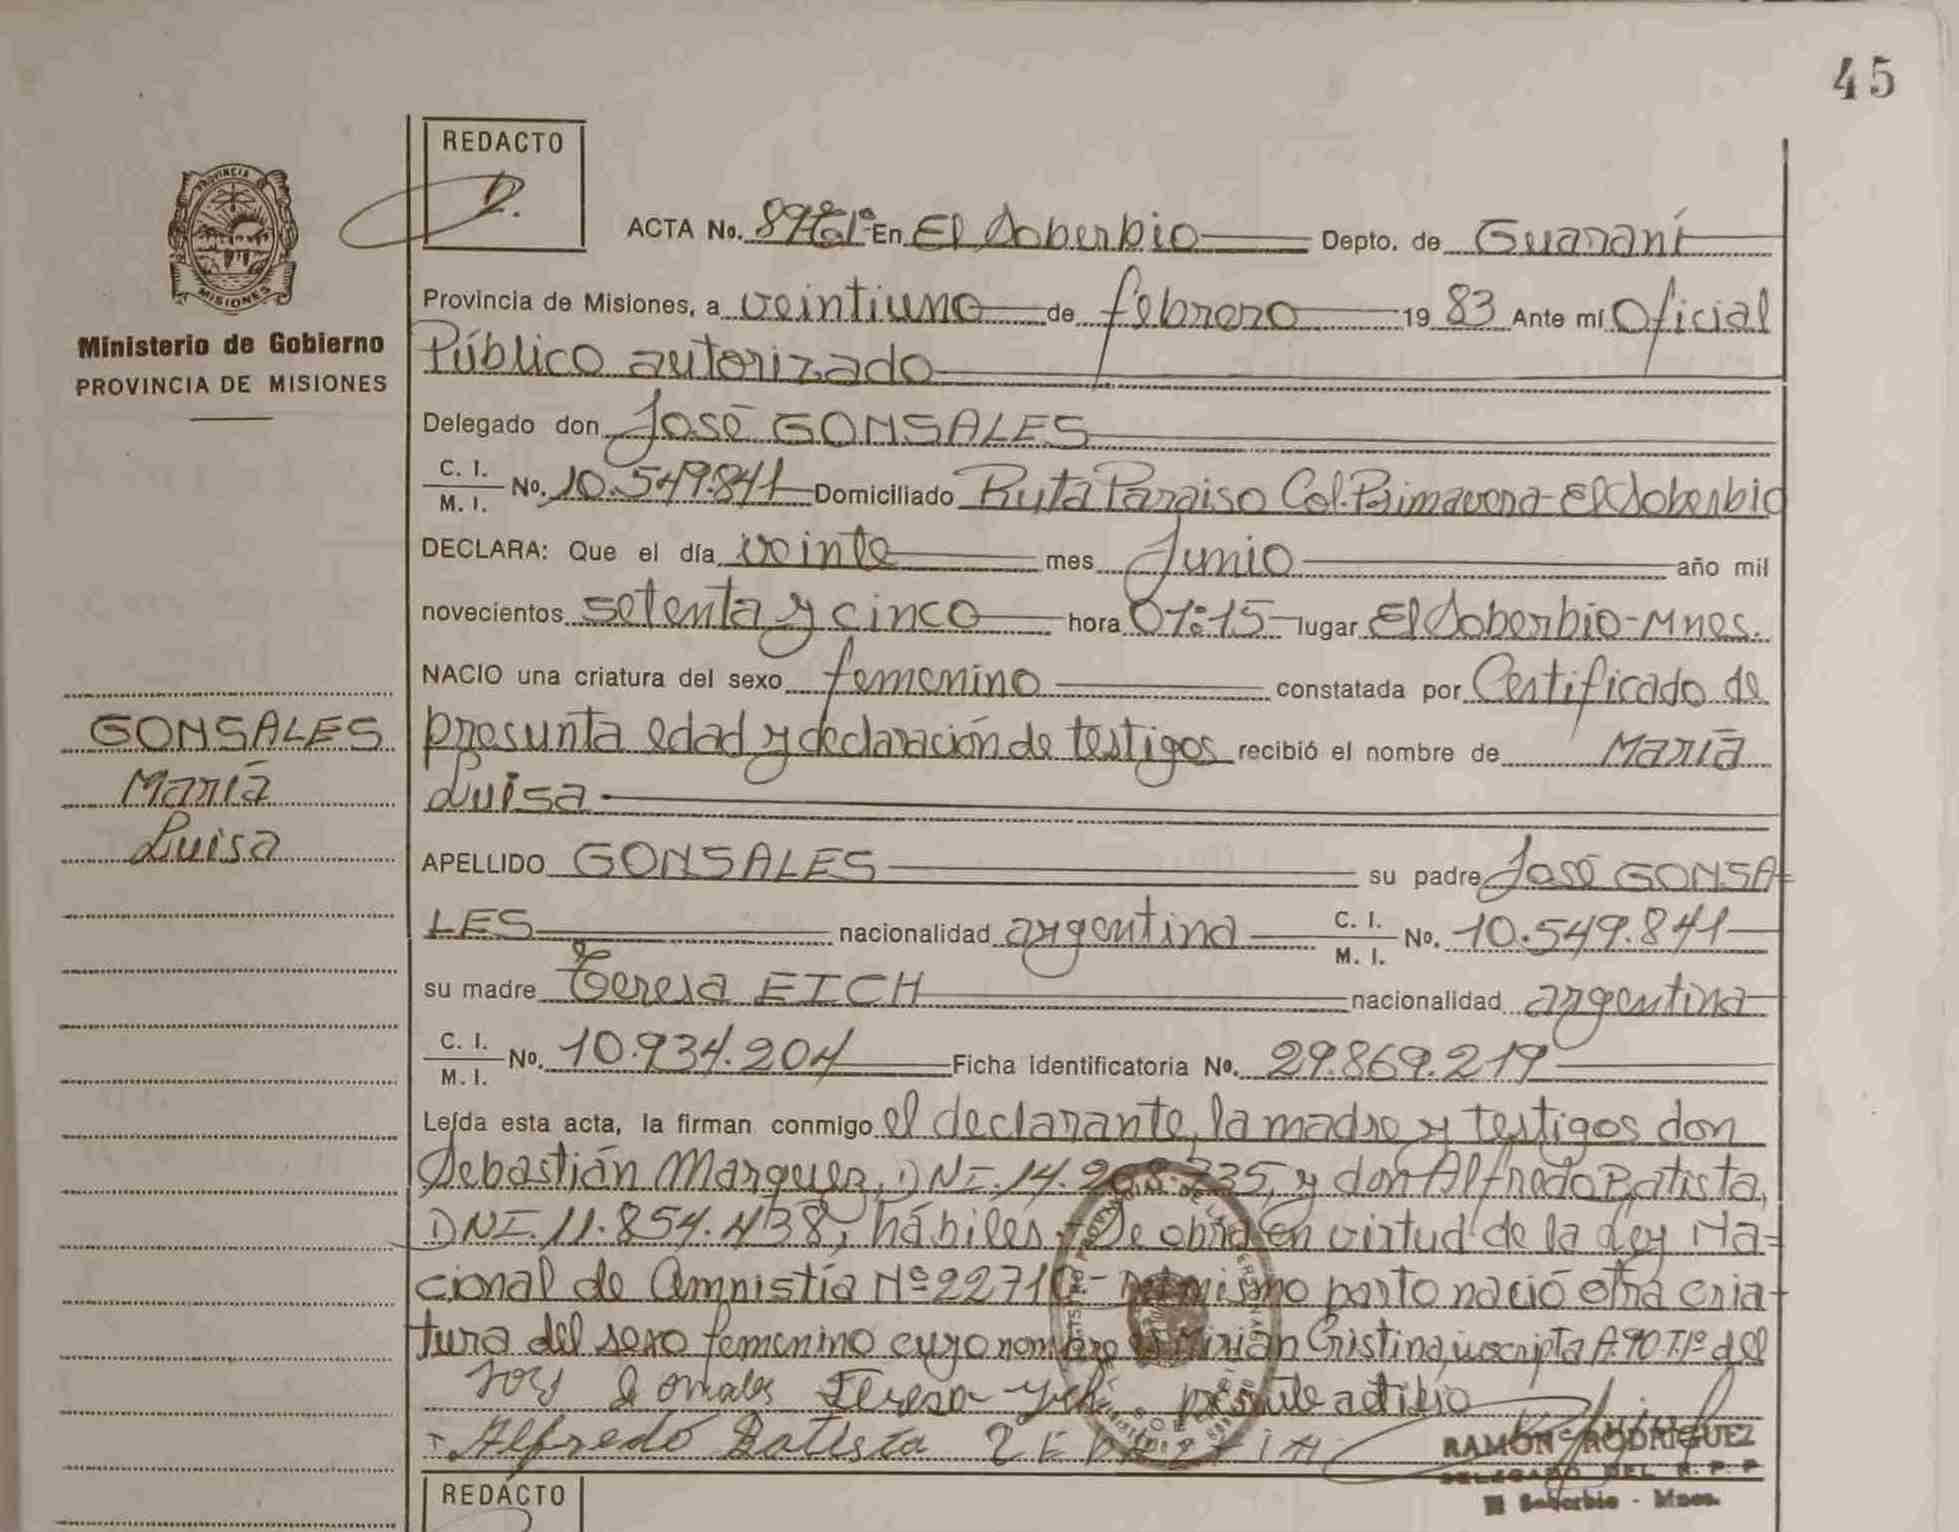 45
REDACTO
PROVINCIA
MISIONES
Ministerio de Gobierno
PROVINCIA DE MISIONES
ACTA No. 89 En El Soberbio Depto. de Guaraní
Provincia de Misiones, a veintiuno de febrero 1983 Ante mí Oficial
Público autorizado
Delegado don José GONSALES
C. I. / M. I. No. 10.549.841 Domiciliado Ruta Paraiso Col. Primavera - El Soberbio
DECLARA: Que el día veinte mes Junio año mil
novecientos setenta y cinco hora 07:15 lugar El Soberbio - Mnes.
NACIO una criatura del sexo femenino constatada por Certificado de
presunta edad y declaración de testigos recibió el nombre de María
Luisa
GONSALES
María
Luisa
APELLIDO GONSALES su padre José GONSA
LES nacionalidad argentina C. I. / M. I. No. 10.549.841
su madre Teresa EICH nacionalidad argentina
C. I. / M. I. No. 10.934.204 Ficha Identificatoria No. 29.869.219
Leída esta acta, la firman conmigo el declarante, la madre y testigos don
Sebastián Marquez, DNI. 14.208.735, y don Alfredo Batista,
DNI. 11.854.438, hábiles. De obra en virtud de la Ley Na=
cional de Amnistía Nº 22710 - mismo parto nació otra cria-
tura del sexo femenino cuyo nombre es Mirian Cristina, inscripta A. 90 T. 1º del
Teresa
Alfredo Batista
RAMON RODRIGUEZ
DELEGADO DEL R. P. P
El Soberbio - Mnes.
REDACTO